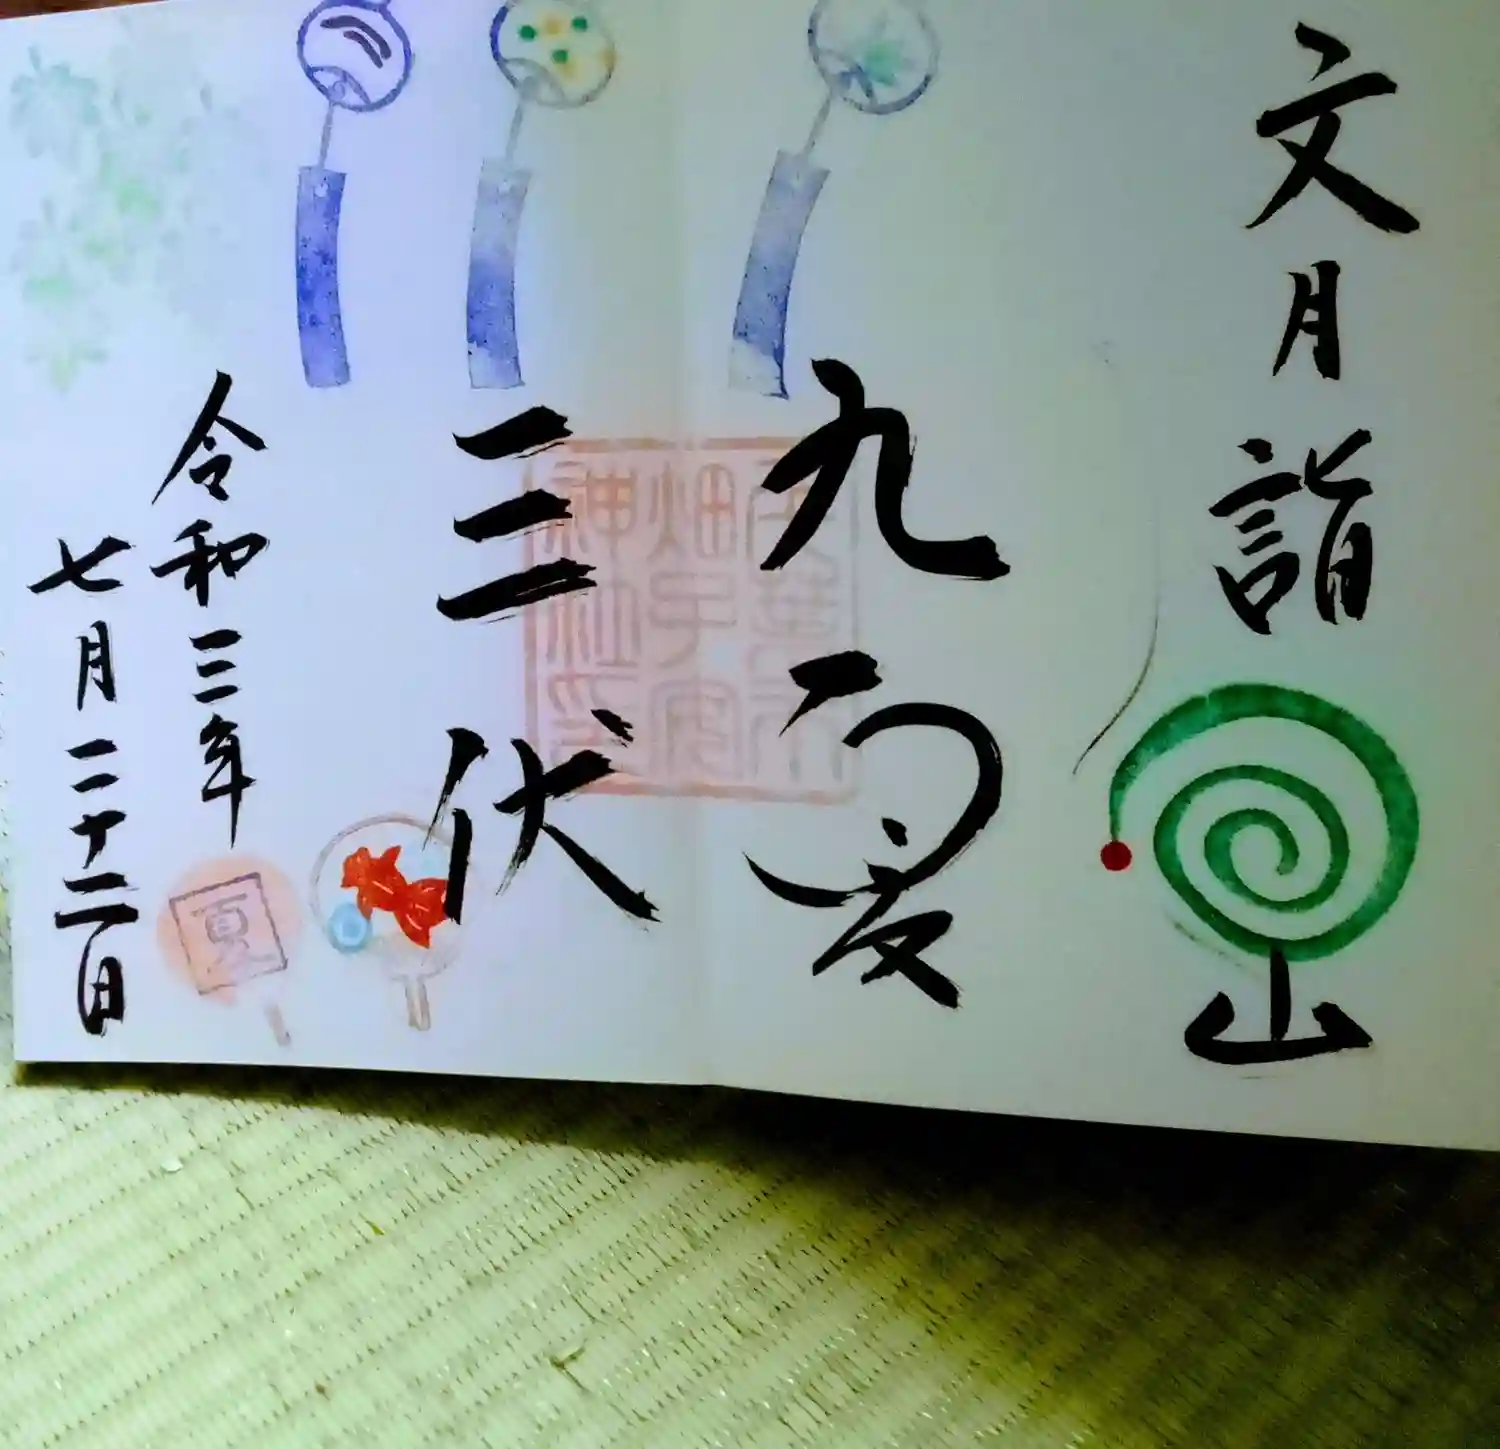 文月詣
山
九夏
三伏
畑子安
神社印
令和三年
七月二十二日
夏